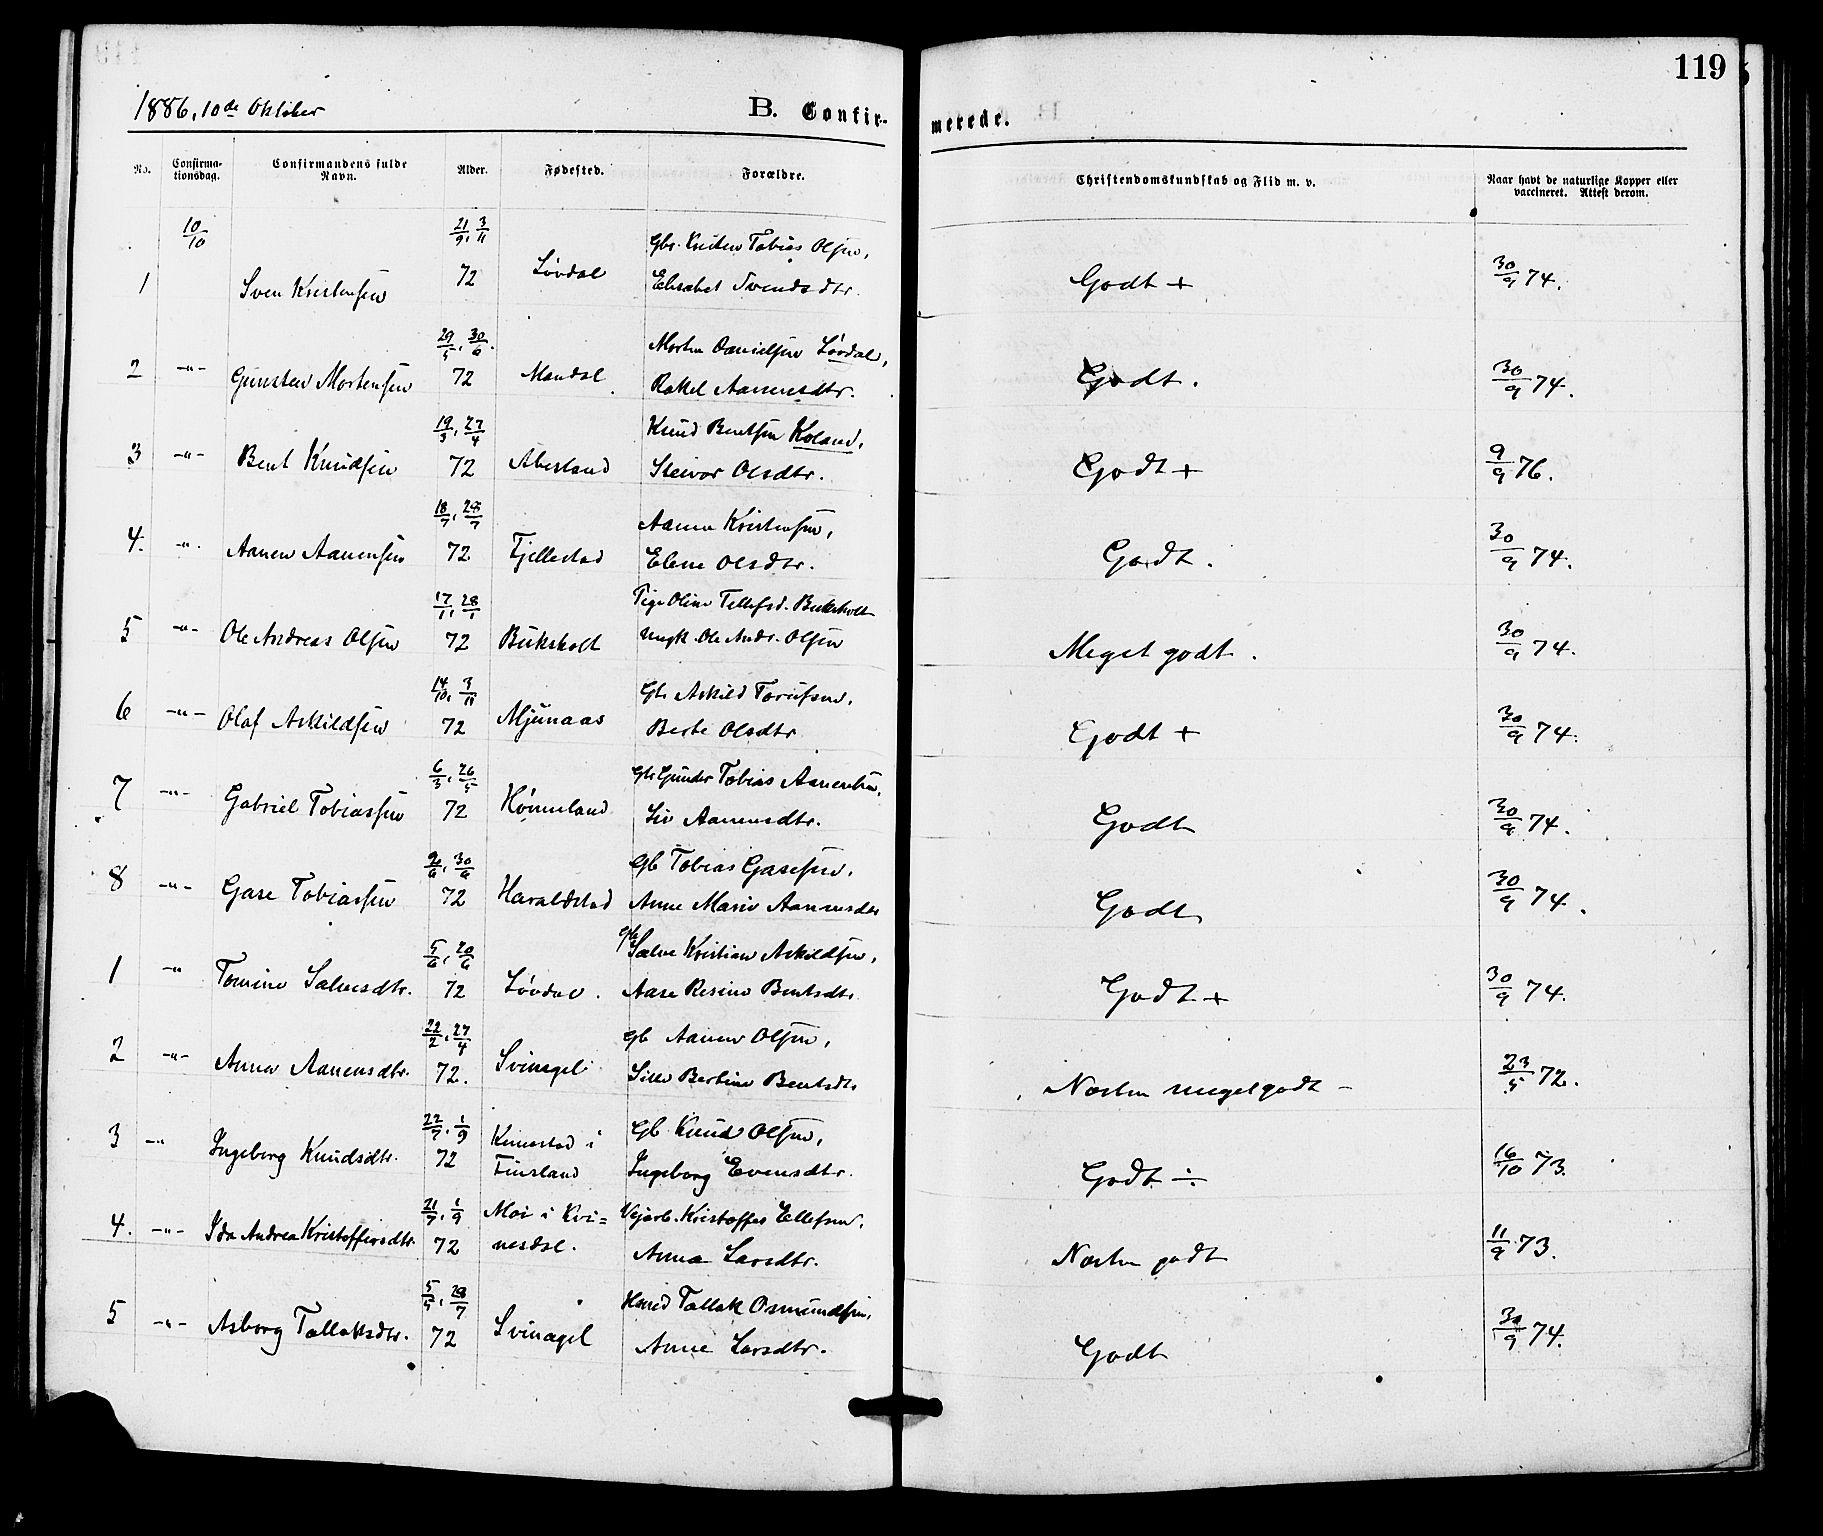 119
1886, 10de Oktober B. Confir- merede.
No. Confirma-tionsdag. Confirmandens fulde Navn. Alder. Fødested. Forældre. Christendomskundskab og Flid m. v. Naar havt de naturlige Kopper eller vaccineret. Attest derom.
10/10 21/9, 3/11 Gbr. Kristen Tobias Olsen,
1 Sven Kristensen 72 Løvdal Elisabet Svendsdtr. Godt + 30/9 74.
29/5, 30/6. Morten Danielsen Løvdal,
2 -"- Gunsten Mortensen 72 Mandal Rakel Aanensdtr. Godt. 30/9 74.
19/3, 27/4 Knud Bentsen Koland,
3 -"- Bent Knudsen 72 Abesland Steivor Olsdtr. Godt + 9/9 76.
18/7, 28/7 Aanen Kristensen,
4. -"- Aanen Aanensen 72 Fjellestad Elene Olsdtr. Godt. 30/9 74.
17/1, 28/1 Pige Oline Tellefsd. Buksholt
5 -"- Ole Andreas Olsen 72 Buksholt Ungk. Ole Andr. Olsen Meget godt. 30/9 74.
14/10, 3/11 Gb. Askild Torufsen,
6 -"- Olaf Askildsen 72 Mjunaas Berte Olsdtr. Godt + 30/9 74.
6/3, 26/5 Gb Gunder Tobias Aanensen,
7 -"- Gabriel Tobiassen 72 Hønneland Siv Aanensdtr. Godt 30/9 74.
2/6, 30/6 Gb Tobias Gasesen,
8 -"- Gase Tobiassen 72 Haraldstad Anne Marie Aanensdtr Godt 30/9 74.
5/6, 20/6 Gb Salve Kristian Askildsen,
1 -" Tomine Salvesdtr. 72 Løvdal. Aase Resine Bentsdtr. Godt + 30/9 74.
22/2, 27/4 Gb Aanen Olsen,
2 -"- Anna Aanensdtr. 72. Svinagel Sille Bertine Bentsdtr Næsten megetgodt - 23/5 72.
22/7, 1/9 Kinestad i Gb Knud Olsen,
3 -" Ingeborg Knudsdtr. 72 Finsland Ingeborg Evensdtr. Godt ÷ 16/10 73.
21/7, 1/9 Moi i Kvi= Vejarb. Kristoffer Ellefsen,
4. -"- Ida Andrea Kristoffersdtr. 72 nesdal. Anna Larsdtr. Næsten godt 11/9 73.
5/5, 28/7 Hmd Tallak Osmundsen,
5 -"- Asborg Tallaksdtr. 72 Svinagel Anne Larsdtr. Godt 30/9 74.